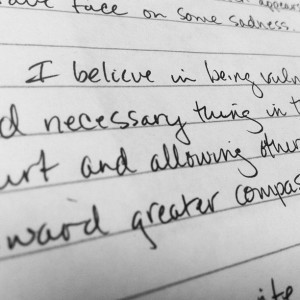 appears
face on some sadness.
I believe in being vuln
d necessary thing in t
urt and allowing other
ward greater compas
ite